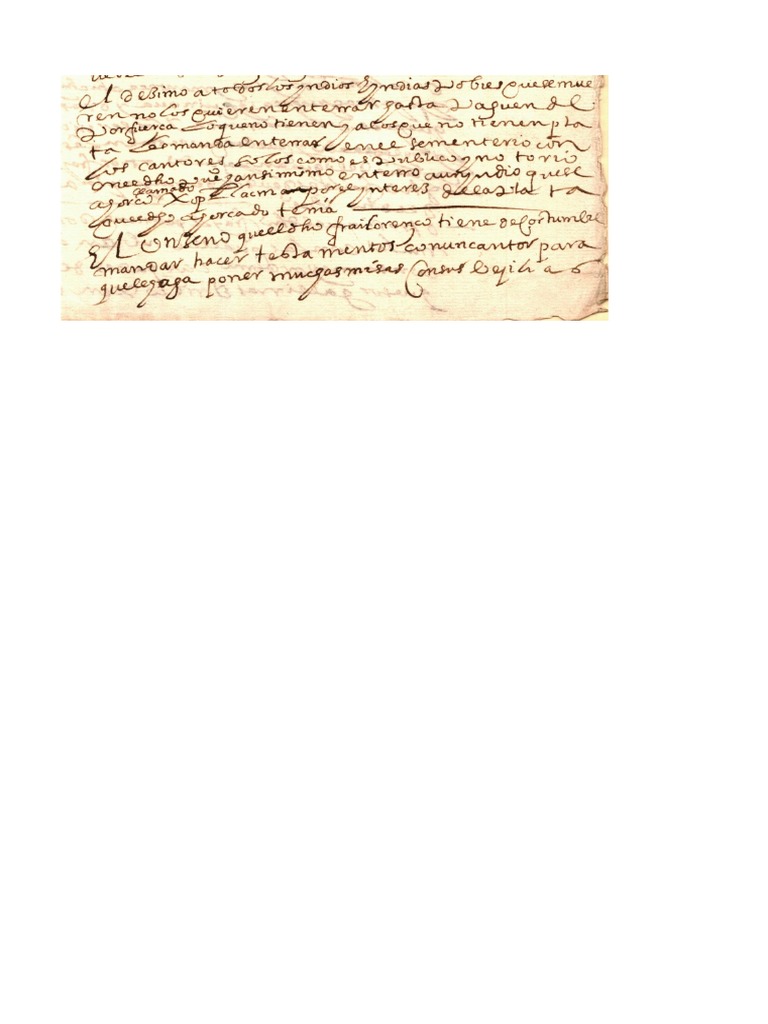 El desimo a todos los yndios E yndias Pobres que se mue
ren no los quieren enterrar hasta Paguen del
Por fuerca Lo que no tienen y a los que no tienen pla
ta La manda enterrar en el sementerio con
los cantores solos como es Publico y no torio
llamado
ahorco xopl por el ynteres de la Plata
quel dho ahorcado tenia
El Onseno quel dho frai lorenco tiene de Costumbre
mandar hacer testa mentos con un cantor para
que le haga poner muchas misas Con sus bejilias